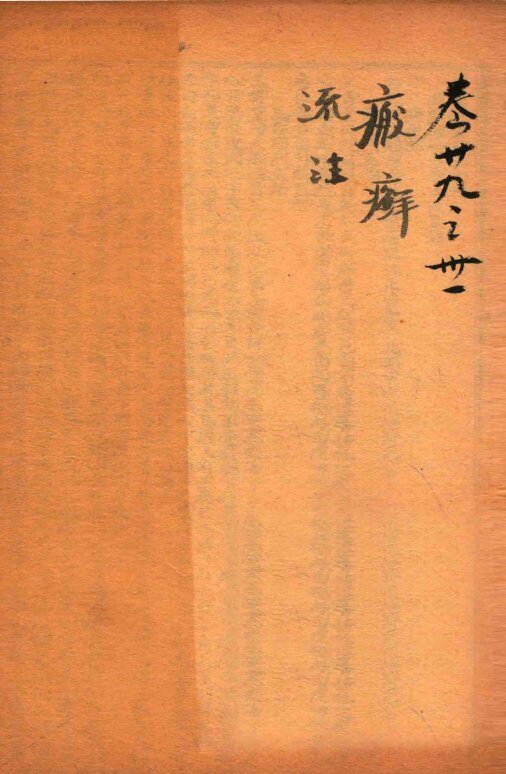 卷廿九之卅一
瘢癬
流注